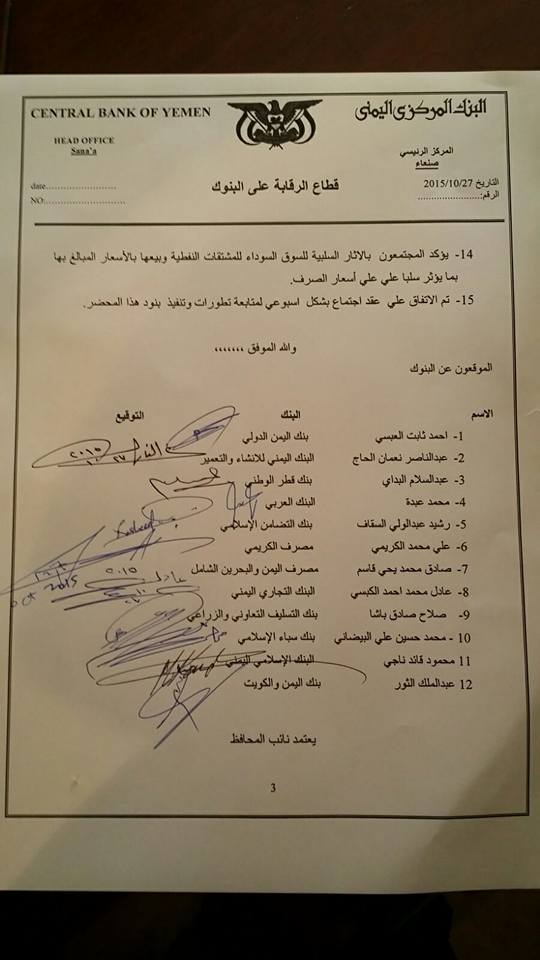 CENTRAL BANK OF YEMEN
البنك المركزي اليمني
HEAD OFFICE
Sana'a
المركز الرئيسي
صنعاء
date........................
NO:........................
قطاع الرقابة على البنوك
التاريخ 2015/10/27
الرقم:........................
14- يؤكد المجتمعون بالاثار السلبية للسوق السوداء للمشتقات النفطية وبيعها بالأسعار المبالغ بها
بما يؤثر سلبا علي علي أسعار الصرف.
15- تم الاتفاق علي عقد اجتماع بشكل اسبوعي لمتابعة تطورات وتنفيذ بنود هذا المحضر.
والله الموفق ،،،،،،،
الموقعون عن البنوك
الاسم البنك التوقيع
1- احمد ثابت العبسي بنك اليمن الدولي
2- عبدالناصر نعمان الحاج البنك اليمني للانشاء والتعمير
3- عبدالسلام البداي بنك قطر الوطني
4- محمد عبدة البنك العربي
5- رشيد عبدالولي السقاف بنك التضامن الإسلامي
6- علي محمد الكريمي مصرف الكريمي
7- صادق محمد يحي قاسم مصرف اليمن والبحرين الشامل
8- عادل محمد احمد الكبسي البنك التجاري اليمني
9- صلاح صادق باشا بنك التسليف التعاوني والزراعي
10 - محمد حسين علي البيضاني بنك سباء الإسلامي
11 محمود قائد ناجي البنك الإسلامي اليمني
12 عبدالملك الثور بنك اليمن والكويت
يعتمد نائب المحافظ
3